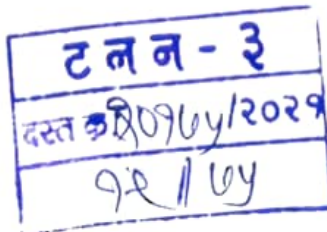 ट ल न - ३
दस्त क्र २०१७५/२०२१
१२ // ७५